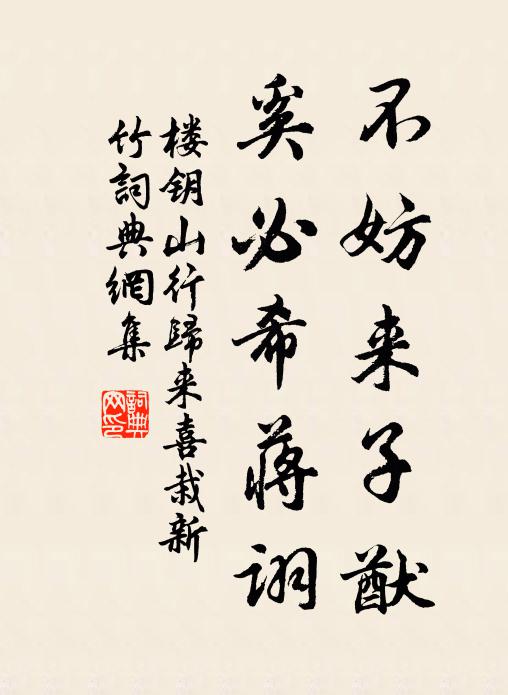 不妨来子猷
奚必希蒋诩
楼钥山行歸来喜栽新
竹詞典網集
詞典
网印